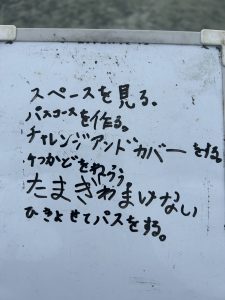 スペースを見る。
パスコースを作る。
チャレンジアンドカバーを作る。
4つかどをねらう
たまぎわまけない
ひきよせてパスをする。